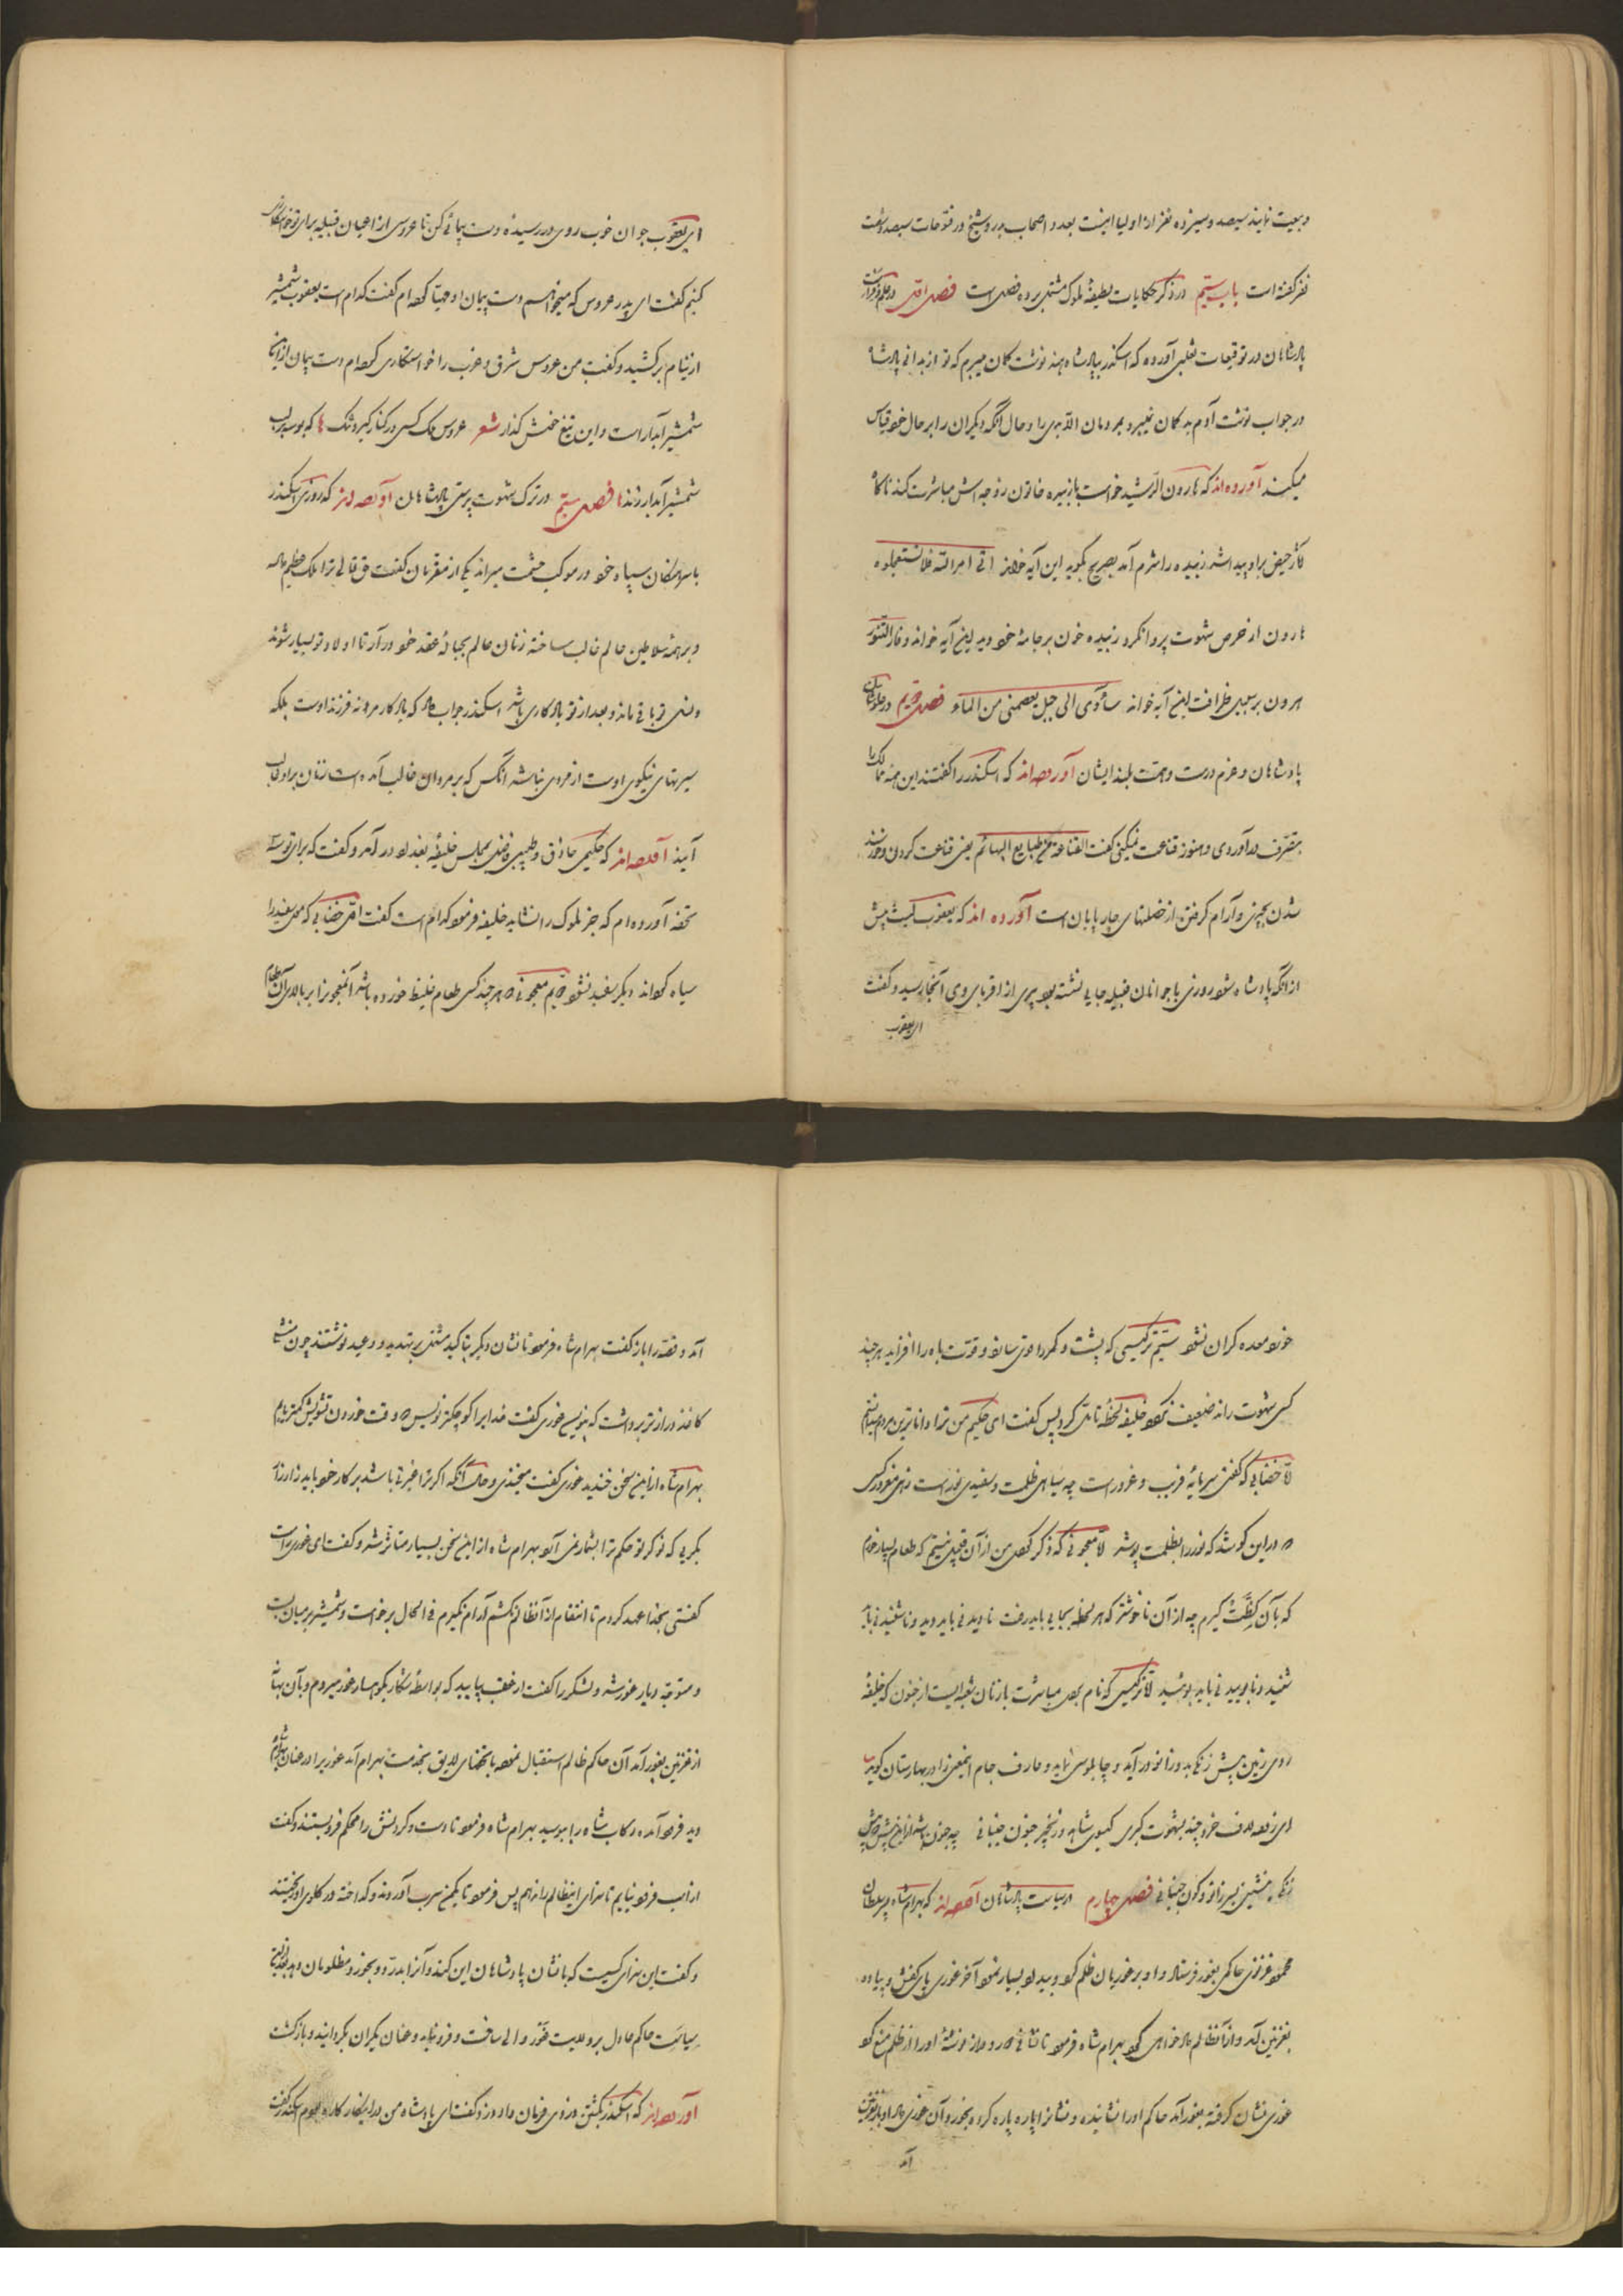 و بیعت نمایند سیصد و سیزده نفر از اولیا اینست بعدد اصحاب بدر و شیخ در فتوحات سیصد و شصت
نفر گفته است باب سیّم در ذکر حکایات لطیفهٔ ملوک مشتمل بر ده فصل است فصل اوّل در علم و فراست
پادشاهان در توقیعات ثعلبی آورده که اسکندر بپادشاه هند نوشت گمان میبرم که تو از بدانی پادشاه
در جواب نوشت آدم بد گمان نمیبرد بمردمان الّا بدی را و حال آنکه دیگران را بر حال خود قیاس
میکنند آورده اند که هارون الرّشید خواست با زبیده خاتون زوجه اش مباشرت کند ناگاه
آثار حیض بر او پیدا شد زبیده را شرم آمد بصریح بگوید این آیه خواند اتی امر الله فلا تستعجلوه
هارون از حرص شهوت پروا نکرد زبیده خون بر جامهٔ خود دید این آیه خواند و فار التنّور
هرون بر سبیل ظرافت این آیه خواند سأوی الی جبل یعصمنی من الماء فصل دویّم در
پادشاهان و عزم درست و همّت بلند ایشان آورده اند که اسکندر را گفتند این همه ممالک را
بتصّرف در آوردی و هنوز قناعت نمیکنی گفت القناعة من طبایع البهائم یعنی قناعت کردن و خورسند
شدن بچیزی و آرام گرفتن از خصلتهای چارپایان است آورده اند که یعقوب لیث پیش
از آنکه پادشاه شود روزی با جوانان قبیله جایی نشسته بود پیری از اقربای وی آنجا رسید و گفت
ای یعقوب
ای یعقوب جوان خوب روی و رسیده دست پیمانی کن تا عروسی از اعیان قبیله برای تو خواستگاری
کنیم گفت ای پدر عروسی که میخواهم دست پیمان او مهیّا کرده ام گفت کدام است یعقوب شمشیر
از نیام بر کشید و گفت من عروس شرق و غرب را خواستگاری کرده ام دست پیمان از اینجا
شمشیر آبدار است و این تیغ خفتن گذار شعر عروس ملک کسی در کنار گیرد تنگ ها که بوسه بر لب
شمشیر آبدار زند ها فصل سیّم در ترک شهوت پرستی پادشاهان آورده اند که روزی اسکندر
با سرهنگان سپاه خود در موکب حشمت میراند یکی از مقرّبان گفت حق تعالی ترا ملک عظیم داده
و بر همهٔ سلاطین عالم غالب ساخته زنان عالم بحبالهٔ عقد خود در آر تا اولاد تو بسیار شوند
و نسل تو باقی ماند و بعد از تو یادگاری باشد اسکندر جواب داد که یادگار مرد نه فرزند اوست بلکه
سیرتهای نیکوی اوست از مردی نباشد آنکس که بر مردان غالب آمده است زنان بر او غالب
آیند آورده اند که حکیمی حاذق و طبیبی فاضل بمجلس خلیفهٔ بغداد در آمد و گفت که برای تو سه
تحفه آورده ام که جز ملوک را نشاید خلیفه فرمود کدام است گفت اوّل خضابی که موی سفید را
سیاه گرداند دیگر سفید نشود دویّم معجونی که هر چند کسی طعام غلیظ خورده باشد آنمعجونرا بر بالای آن
خورد معده گران نشود سیّم ترکیبی که پشت و کمر را قوی سازد و قوّت باه را افزاید هر چند
کسی شهوت راند ضعیف نشود خلیفه لحظهٔ تأمّل کرد پس گفت ای حکیم من ترا داناترین مردم میدانستم
امّا خضابی که گفتی سرمایهٔ فریب و غرور است چه سیاهی ظلمت و سفیدی نور است زهی مغرور کسی
که در این کوشد که نور را بظلمت پوشد امّا معجونی که ذکر کردی من از آن قبیل نیستم که طعام بسیار خورم
که بآن لذّت گیرم چه از آن ناخوشتر که هر لحظه بجایی باید رفت نادیدنی باید دید و ناشنیدنی باید
شنید و نابوییدنی باید بویید امّا ترکیبی که نام بردی مباشرت با زنان شعبه ایست از جنون که خلیفهٔ
روی زمین پیش زنکی بدو زانو در آید و چاپلوسی نماید و عارف جام اینمعنی را در بهارستان گوید
ای زده لاف خرد چند بشهوت گیری گیسوی شاهد و زنجیر جنون جنبانی چه جنون باشد ازین بیش که پیش
زنکی بنشینی بسر زانو و کون جنبانی فصل چهارم در سیاست پادشاهان آورده اند که بهرامشاه پسر سلطان
محمود غزنوی حاکمی بغور فرستاد و او بر غوریان ظلم کرد و بیداد بسیار نمود آخر غوری پای کفش و پیاده
بغزنین آمد و از آنظالم دادخواهی کرد بهرام شاه فرمود تا نشانی که در دیوان نوشته او را از ظلم منع کرد
غوری نشان گرفته بغور آمد حاکم او را نشانیده و نشانرا پاره پاره کرده بخورد آن غوری داد او باز بغزنین
آمد
آمد و قصّه را باز گفت بهرام شاه فرمود تا نشان دیگر بتأکید مشتمل بر تهدید و وعید نوشتند چون منشی
کاغذ درازتر برداشت که بنویسد غوری گفت خدا را کوچکتر نویس که وقت خوردن تشویش کمتر یابم
بهرام شاه از این سخن خندید غوری گفت میخندی و حال آنکه اگر ترا غیرتی باشد بر کار خود باید زار زار
بگریی که نوکر تو حکم ترا بشمار نمی آرد بهرام شاه از این سخن بسیار متأثّر شد و گفت ای غوری راست
گفتی بخدا عهد کردم تا انتقام از آنظالم نکشم آرام نگیرم فی الحال برخواست و شمشیر بر میان بست
و متوجّه دیار غور شد و لشکر را گفت از عقب بیایید که بواسطهٔ شکار بکوهسار غور میروم و بآن بهانه
از غزنین بغور آمد آن حاکم ظالم استقبال نمود با تحفهای لایق بخدمت بهرام آمد غوریرا در عنان بهرام شاه
دید فرود آمده رکاب شاه را ببوسید بهرام شاه فرمود تا دست و گردنش را محکم فرو بستند و گفت
از اسب فرود نیایم تا سزای اینظالم را ندهم پس فرمود تا یکمن سرب آوردند و گداخته در گلوی او ریختند
و گفت این سزای کسیست که با نشان پادشاهان این کند و آنرا بدرد و بخورد مظلومان دهد
سیاست حاکم عادل بر ولایت غور والی ساخت و فرود نیامد و عنان یکران بگردانید و باز گشت
آورده اند که اسکندر بکشتن دزدی فرمان داد دزد گفت ای پادشاه من در اینکار کاره بودم اسکندر گفت